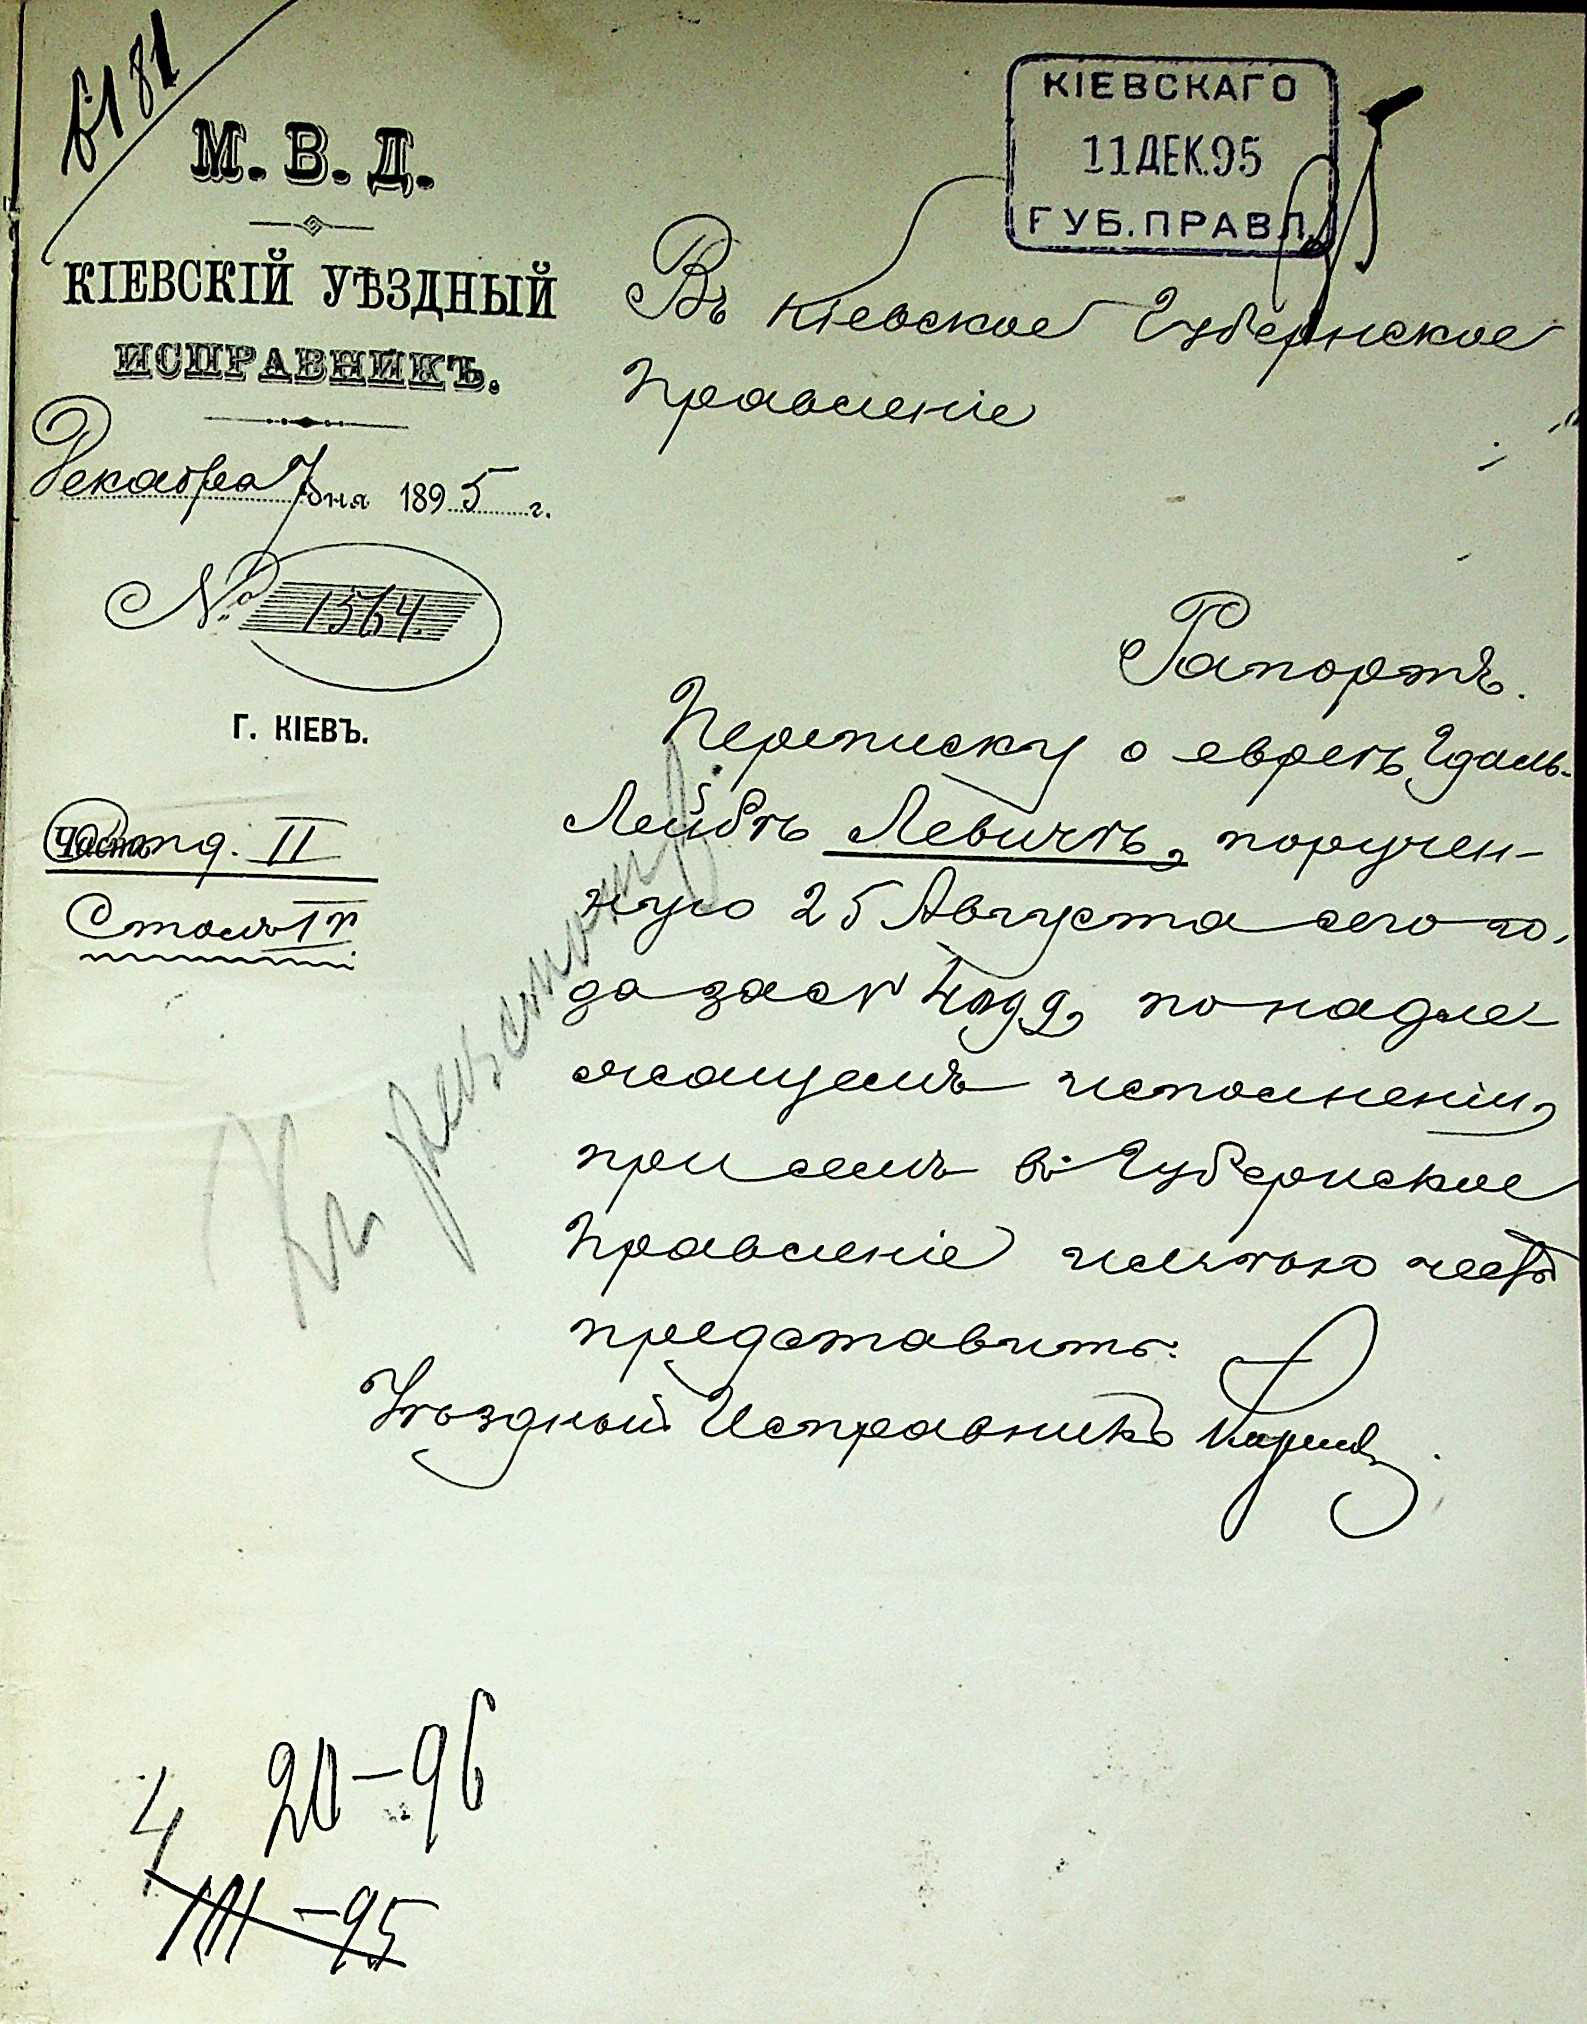 6181
М. В. Д.
КІЕВСКІЙ УѢЗДНЫЙ
ИСПРАВНИКЪ.
Декабря 7 дня 1895 г.
№ 1564.
Г. КІЕВЪ.
отд. II
Столъ 1й
КІЕВСКАГО
11 ДЕК. 95
ГУБ. ПРАВЛ.
Въ Кіевское Губернское
Правленіе
Рапортъ.
Переписку о евреѣ Гдаль-
Лейбѣ Левичѣ, поручен-
ную 25 Августа сего го-
да за №
по надле-
жащемъ исполненіи,
при семъ въ Губернское
Правленіе имѣю честь
представить.
Уѣздный Исправникъ
Къ
20-96
4
111-95